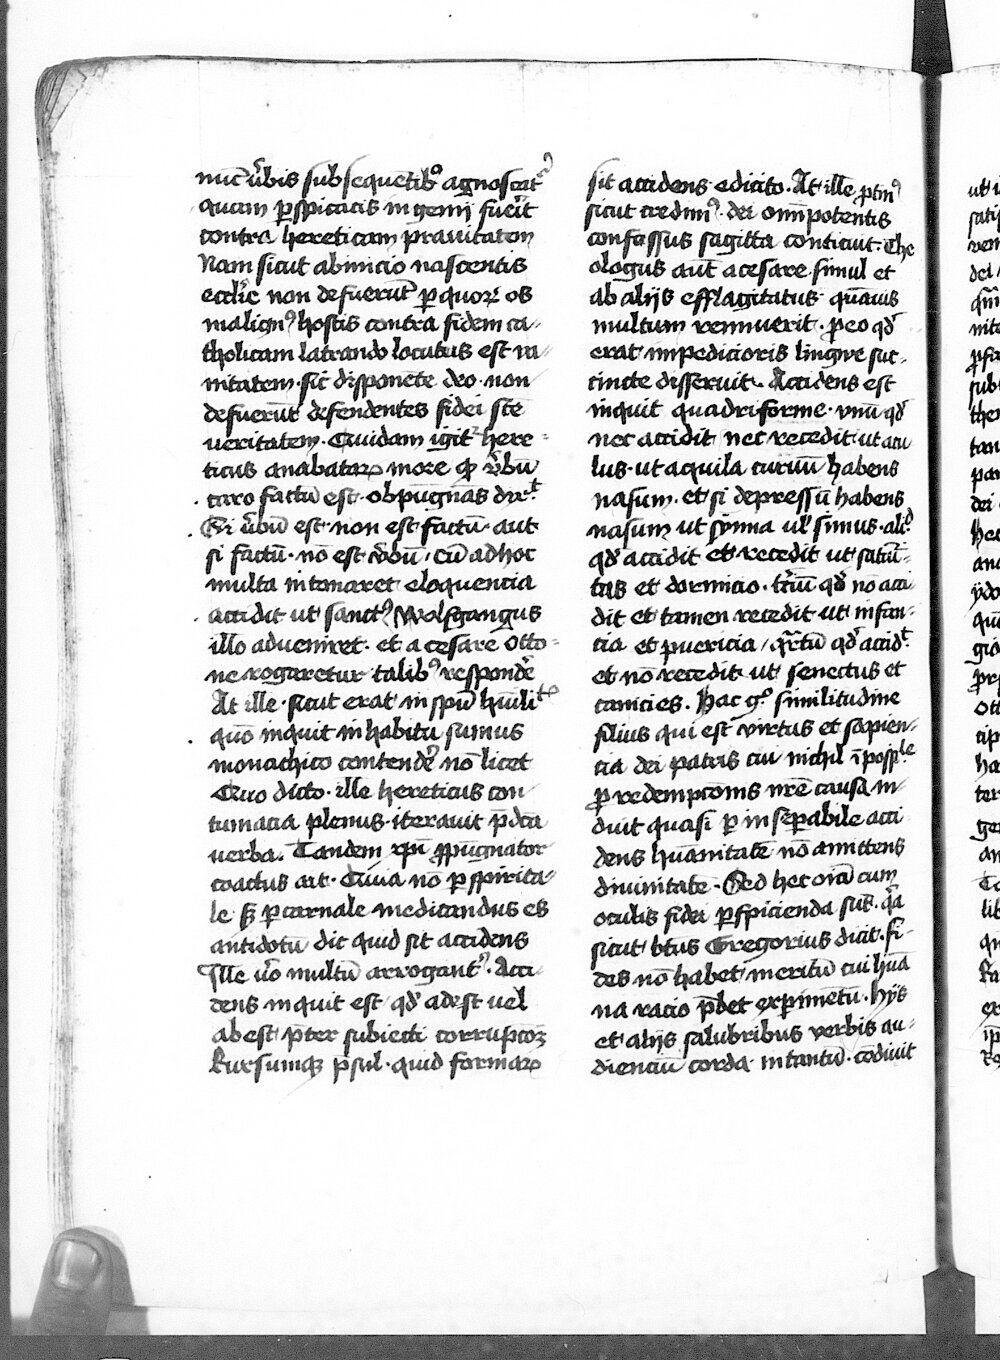 nūc v̄bis subsequētib⁹ agnoscat᷑
quam ꝑspicacis ingenij fu̾it
contra hereticam prauitatem
Nam sicut ab inicio nascentis
eccl̄ie non defuerūt ꝑ quoꝝ os
malign⁹ hostis contra fidem ca-
tholicam latrando locutus est va-
nitatem · sic disponēte deo · non
defuerūt defendentes fidei scē
veritatem · Quidam igit᷑ here-
ticus anabataꝝ more ꝙ v̾bū
caro factū est · obpūgnās dix̾ᵗ
Si v̾bū est · non est factū · aut
si factū · nō est v̾bū · cū ad hoc
multa intonaret eloquencia
accidit ut sanct⁹ Wolfgangus
illo adueniret · et a cesare Otto-
ne rogaretur talib⁹ respondē
At ille · sicut erat in spū hūiliᵗᵉ
quō inquit in habitu sumus
monachico contende̾ nō licet
Quo dicto · ille hereticus con
tumacia plenus · iterauit p̄dc̄a
verba. Tandem xp̄i ꝓpugnator
coactus ait · Quia nō ꝑ spirita-
le sꝫ ꝑ carnale medicandus es
antidotū dic quid sit accidens
Ille v̾o multū arrogant᷑ · Acci
dens inquit est · qd̾ adest uel
abest p̄ter subiecti corrupcōꝫ
Rursumqꝫ p̄sul · quid formaꝝ
sit accidens · edicito · At ille ꝓtin⁹
sicut credim⁹ · dei omīpotentis
confossus sagitta conticuit · The
ologus aūt a cesare simul et
ab alijs efflagitatus · quāuis
multum rennuerit · ꝑ eo qd̾
erat impedicioris lingwe suc-
cincte disseruit · Accidens est
inquit quadriforme · vnū qd̾
nec accidit nec recedit · ut acu
lus · ut aquila curuū habens
nasum · et si depressū habens
nasum ut symia ul̾ simus · aliᵈ
qd̾ accidit et recedit ut sacie-
tas et dormicio · t̾ciū qd̾ nō acci
dit et tamen recedit ut infan-
tia et puericia / qr̄tū qd̾ accidᵗ
et nō recedit ut senectus et
canicies. Hac gͦ similitudine
filius qui est virtus et sapien-
tia dei patris cui nichil īpossⁱˡᵉ
ꝑ redempcōnis nr̄e causa in
duit quasi ꝑ inseꝑabile acci
dens hūanitatē nō amittens
diuinitatē · Sed hec oīa cum
oculis fidei ꝑspicienda sūt · qͣa
sicut bt̄us Gregorius dicit · fi-
des nō habet meritū cui hūa
na racio p̄bet exꝑimētū · hijs
et alijs salubribus verbis au-
dienciū corda · intantū · cōdiuit